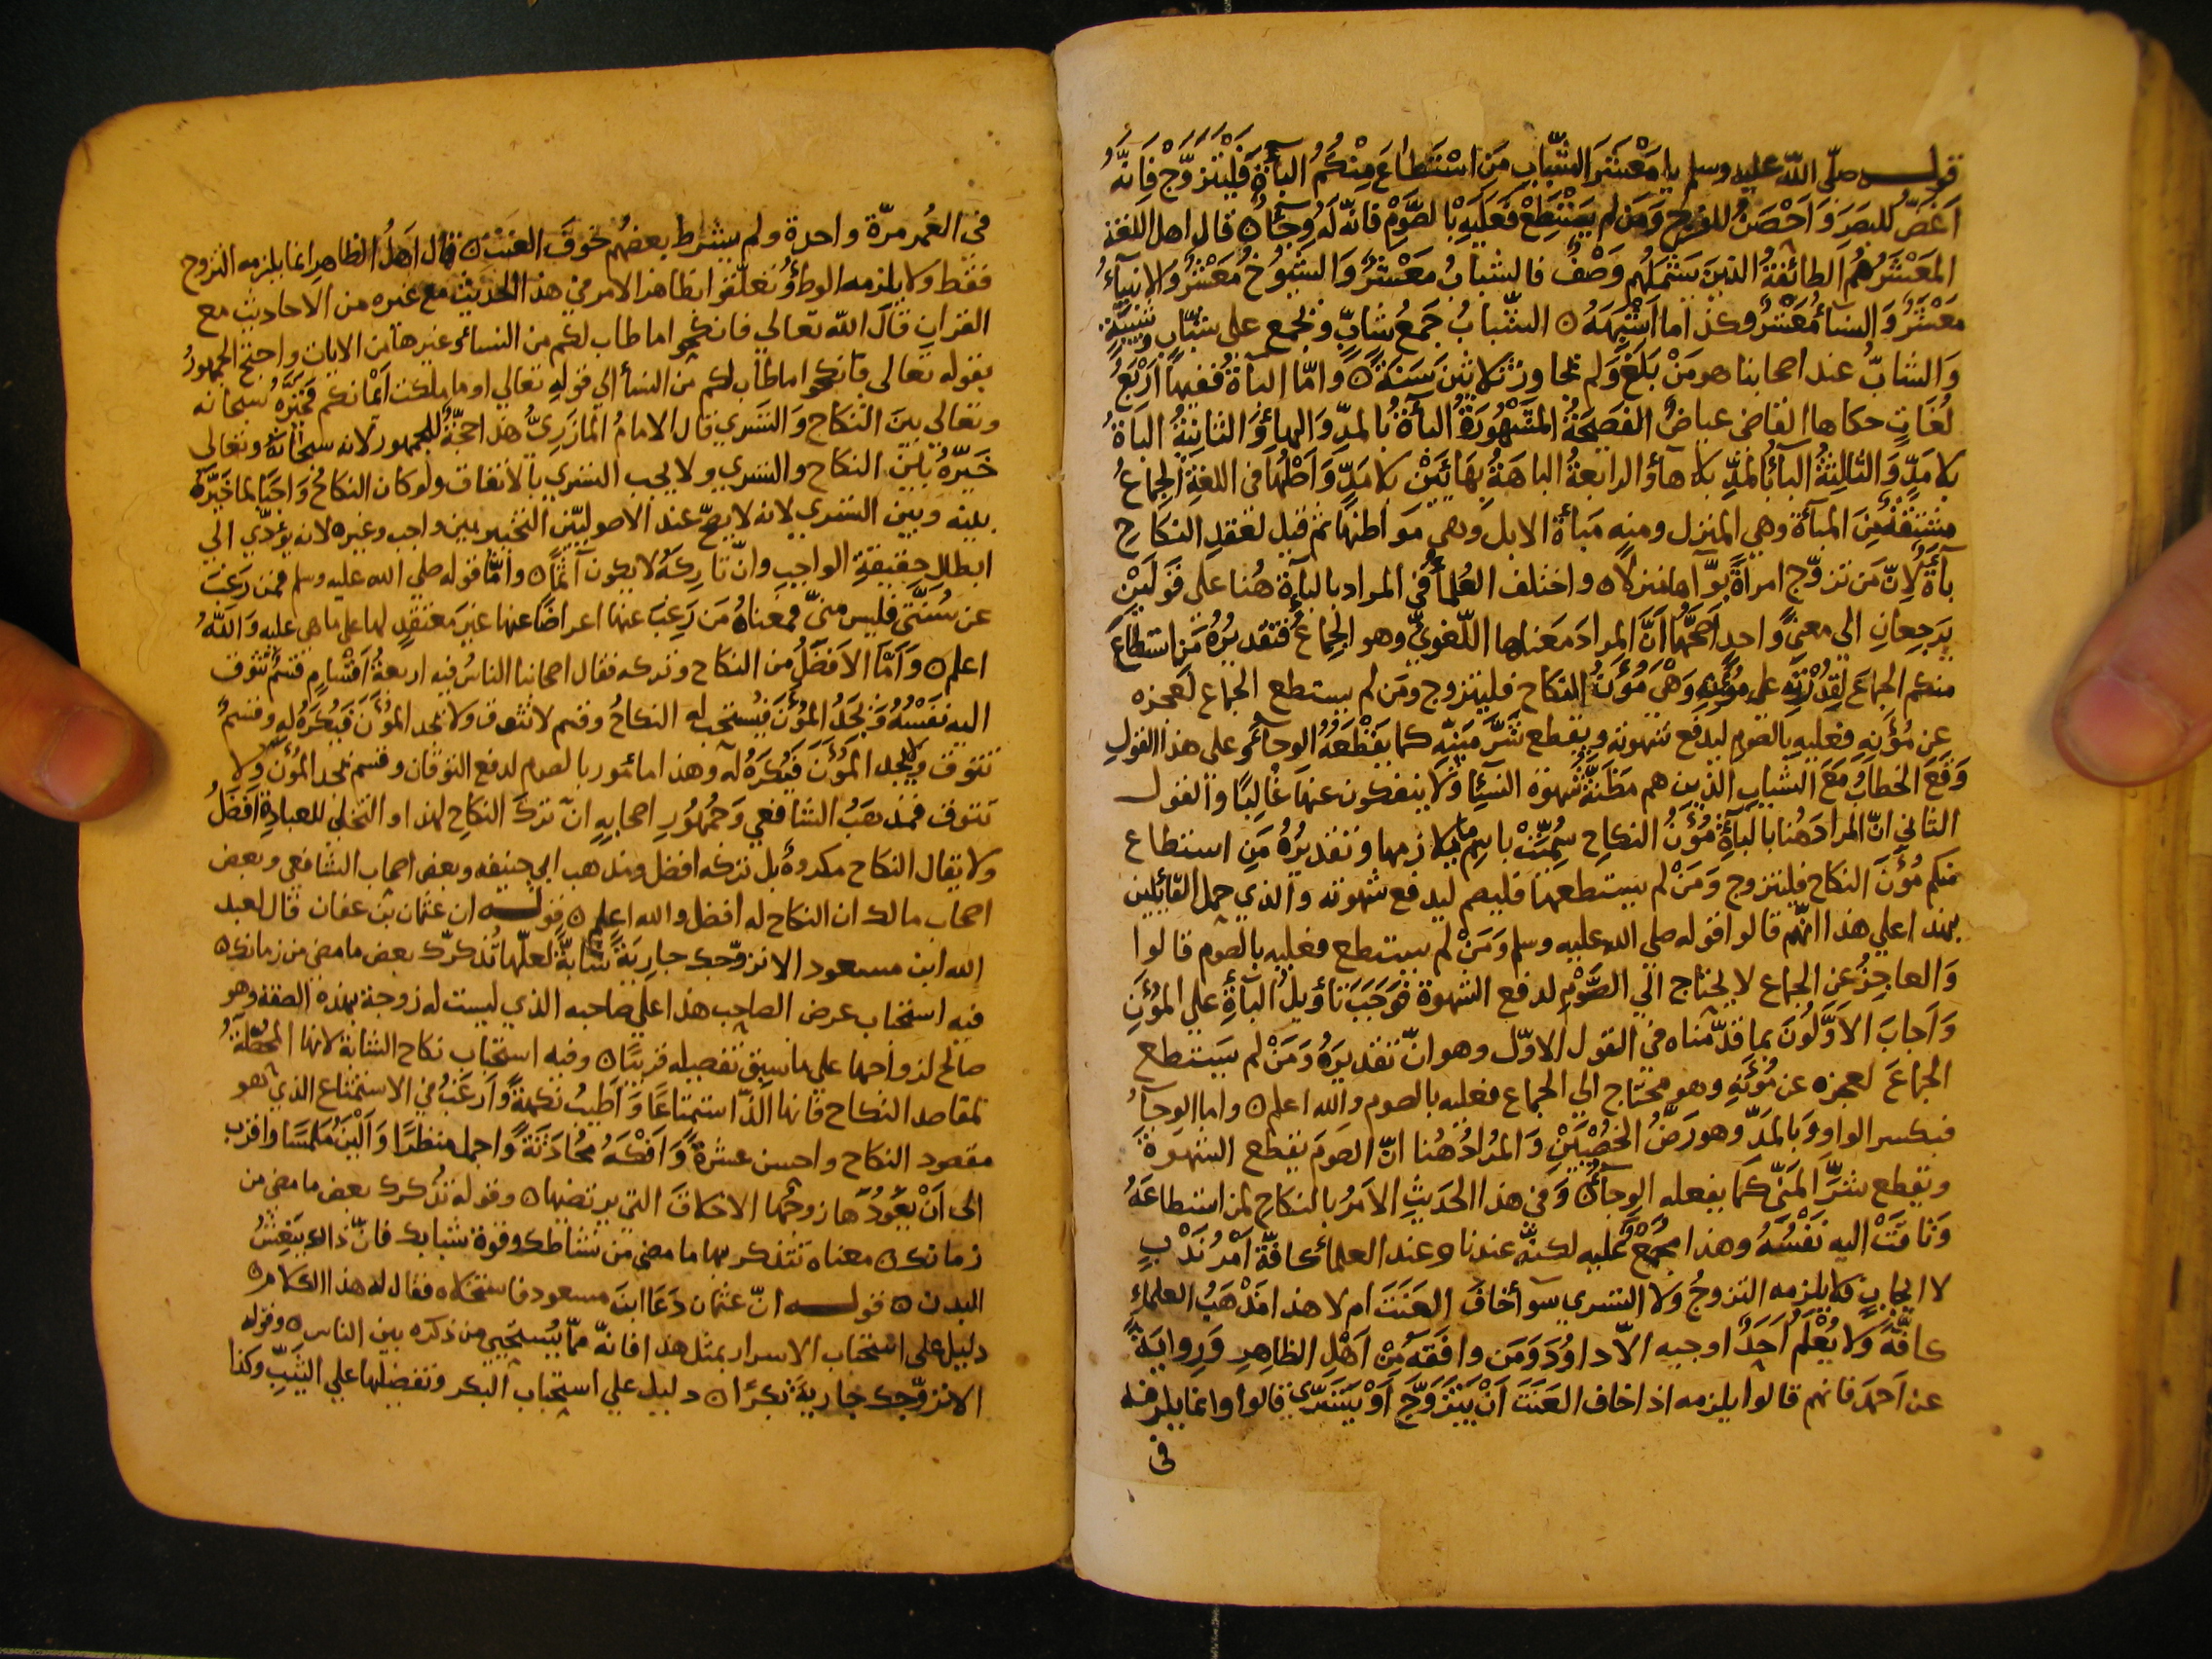 قوله صلّى الله عليه وسلم يا مَعْشَرَ الشَّبابِ مَنِ اسْتَطاعَ مِنْكُمُ البآءَةَ فَلْيَتَزوَّجْ فَاِنّهُ
اَغَضُّ للبَصَرِ وَاَحْصَنُ للفرج وَمَن لم يَسْتَطِعْ فَعَلَيْهِ بالصَّوْمِ فانّه لَهُ وِجآءٌ ۞ قال اهل اللغة
المَعْشَرُ هُم الطائفةُ الذينَ يَشْمَلُهُم وَصْفٌ فالشبابُ مَعْشَرٌ وَالشيُوخُ مَعْشَرٌ والانبيآءُ
مَعْشَرٌ وَالنسآءُ مَعْشَرٌ وكذا ما اَشْبَهَهُ ۞ الشَّبابُ جَمعُ شابٍّ ويجمع على شبّان وشَبَبَةٍ
وَالشابُّ عند اصحابنا هو مَنْ بَلَغَ وَلم يجاوز ثلاثِينَ سَنَةً ۞ وامّا البآءَةُ ففيها اَرْبَعُ
لُغَاتٍ حكاها القاضى عياضٌ الفَصِيحَةُ المَشْهُورَةُ البآءَةُ بالمدِّ وَالهاءِ وَالثانيةُ الباةُ
بلا مَدٍّ وَالثالِثَةُ البآءُ بالمدِّ بلا هآءٍ والرابعةُ الباهَةُ بهائَيْنِ بلا مَدٍّ وَاَصْلُها في اللغةِ الجِماعُ
مشتقةٌ مِنَ المبآءة وهي المنزل ومنه مَبآءة الابل وهي مواطنها ثم قيل لعَقدِ النكاحِ
بآءَةٌ لانّ مَن تزوّج امرأةً بوّأها منزلاً ۞ واختلف العُلمآءُ في المراد بالبآءة هُنا على قَولَيْنِ
يَرجِعانِ الي معنًى واحدٍ اَصَحُّهُما اَنَّ المرادَ مَعناها اللّغويّ وهو الجِماعُ فتقديرُهُ مَنِ استطاعَ
منكم الجِماعَ لِقُدْرَتِهِ على مُؤَنِهِ وَهْىَ مُؤَنُ النكاح فليتزوج ومَن لم يستطع الجماع لعجزه
عن مُؤَنِهِ فعليه بالصوم ليدفع شهوته ويقطع شَرَّ مَنيّهِ كما يَقْطَعُهُ الوِجآءُ وعلى هذا القولِ
وَقَعَ الخطابُ مَعَ الشباب الذين هم مَظَنّةُ شهوَة النسآءِ وَلا ينفكون عنها غالِبًا وَالقول
الثاني انّ المرادَ هُنا بالبآءَةِ مُؤَنُ النكاحِ سُمِّيَتْ باسمِ ما يلازمها وتقديرُهُ مَنِ استطاع
منكم مُؤَنَ النكاحِ فليتزوج وَمَنْ لم يستطعها فليصم ليدفع شهوته والذي حمل القآئلين
بهذا على هذا انّهم قالوا قوله صلي الله عليه وسلم وَمَنْ لم يستطع فعليه بالصوم قالوا
وَالعاجِزُ عن الجماع لا يحتاج الي الصَّوْمِ لدفع الشهوة فوَجَبَ تأويلُ البآءَةِ علي المؤنِ
وَاَجابَ الاَوَّلُونَ بما قدّمناه في القول الاوّل وهو انّ تقديرَهُ وَمَنْ لم يَستطع
الجماعَ لعجزه عن مُؤَنِهِ وهو محتاج الي الجماع فعليه بالصوم والله اعلم ۞ واما الوِجآءُ
فبكسر الواو وَبالمدِّ وهو رَضُّ الخُصْيَتَيْنِ وَالمُرادُ هُنا انّ الصومَ يقطع الشهوةَ
ويقطع شرَّ المَنىِّ كما يفعله الوِجآءُ ۞ وَفي هذا الحَديثِ الاَمرُ بالنكاحِ لمن استطاعَهُ
وَتاقَتْ اليه نَفْسُهُ وهذا مُجمَعٌ عليه لكنّه عندنا وعند العلمآء كافّةً اَمْرُ نَدْبٍ
لا ايجابٍ فلا يلزمه التزوجُ وَلا التسَري سوآ خافَ العَنَتَ ام لا هذا مَذْهَبُ العلمآءِ
كافَّةً وَلا يُعْلَمُ اَحَدٌ اوجبه الاّ داوُدَ وَمَن وافَقَهُ مِنْ اَهْلِ الظاهِرِ وَرِوايَةٌ
عن اَحمَدَ فانهم قالوا يلزمه اذا خاف العَنَتَ اَنْ يَتَزَوَّجَ اَوْ يَتَسَرّى قالوا وانما يلزمه
في
في العُمر مرّة واحدة ولم يشرط بعضُهم خوفَ العَنَتْ ۞ قال اَهلُ الظاهِرِ انما يلزمه التزوج
فقط ولا يلزمه الوطؤُ وتعلّقوا بظاهر الامر في هذا الحديث مع غيره من الاحاديث مع
القرانِ قالَ الله تعالي فانكحوا ما طاب لكم من النسآء وغيرها من الايات واحتج الجمهورُ
بقوله تعالى فانكحوا ما طاب لكم من النسآ الي قولهِ تعالي او ما ملكت اَيْمانكم فخيَّرَهُ سُبحانه
وتعالي بينَ النكاحِ وَالتسَري قال الامامُ المازريُّ هذا حجّةٌ للجمهور لانه سبحانَهُ وتعالى
خَيّرَهُ بينَ النكاح والتسري ولا يجب التسري بالاتفاق ولو كان النكاحُ وَاجبًا لما خَيَّرَهُ
بينه وبين التسري لانه لا يصحّ عند الاصوليّين التخيير بين واجب وغيره لانه يؤدّي الي
ابطال حقيقةِ الواجبِ وانّ تارِكَهُ لا يكون آثِمًا ۞ وامّا قوله صلي الله عليه وسلم فمن رَغِبَ
عن سُنّتي فليس منيّ فمعناهُ مَن رَغِبَ عنها اعراضًا عنها غيرَ معتقدٍ لها على ما هي عليه وَاللّهُ
اعلم ۞ وَاَمّا الاَفضلُ من النكاح وتركه فقال اصحابنا الناسُ فيه اربعةُ اَقْسامٍ قسمٌ تتوق
اليه نَفْسُهُ وَيَجِدُ المُؤَنَ فيُستحب له النكاحُ وقسم لا تتوق ولا يجد المُؤَنَ فيُكرَهُ له وقسمٌ
تتوق ولا يجد المؤنَ فيُكرَهُ له وهذا مأمور بالصوم لدفع التوقان وقسم يجد المؤنَ وَلا
تتوق فمذهبُ الشافعي وَجُمهُورِ اصحابهِ انّ تركَ النكاحِ لهذا والتخلي للعبادةِ افضَلُ
ولا يقال النكاح مكروهٌ بل تركه افضل ومذهب ابي حنيفه وبعض اصحاب الشافعي وبعض
اصحاب مالك ان النكاح له افضل والله اعلم ۞ قوله ان عثمان بن عفان قال لعبد
الله ابن مسعود الا نزوّجك جارِيَةً شابّةً لعلّها تُذكرّك بعض ما مضي من زمانك ۞
فيه استحباب عرض الصاحب هذا علي صاحبه الذي ليست له زوجة بهذه الصفة وهو
صالح لزواجها علي ما سبق تفصيله قريبًا ۞ وفيه استحباب نكاح الشابة لانها المحصّلةُ
لمقاصد النكاح فانها الذّ استمتاعًا وَاَطيبُ نكهةً وَارغَبُ في الاستمتاع الذي هو
مقصود النكاح واحسن عشرةً وَاَفْكَهُ مُحادَثَةً واجمل منظرًا وَاَلْيَنُ مَلمسًا واقرب
الى اَنْ يُعَوِّدَها زوجُها الاخلاقَ التي يرتضيها ۞ وقوله تذكرك بعض ما مضي من
زمانك ۞ معناه تتذكر بها ما مضي من نشاطك وقوة شبابك فانّ ذالك يُنعِشُ
البدن ۞ قوله انّ عثمان دَعَا ابنَ مسعود فاستخلاه فقال له هذا الكلام ۞
دليل على استحباب الاسرار بمثل هذا فانهّ ممّا يُستحيي من ذكره بين الناس ۞ وقوله
الا نزوّجك جاريةً بكرًا ۞ دليل علي استحباب البكر وتفضيلها علي الثيّبِ وكذا